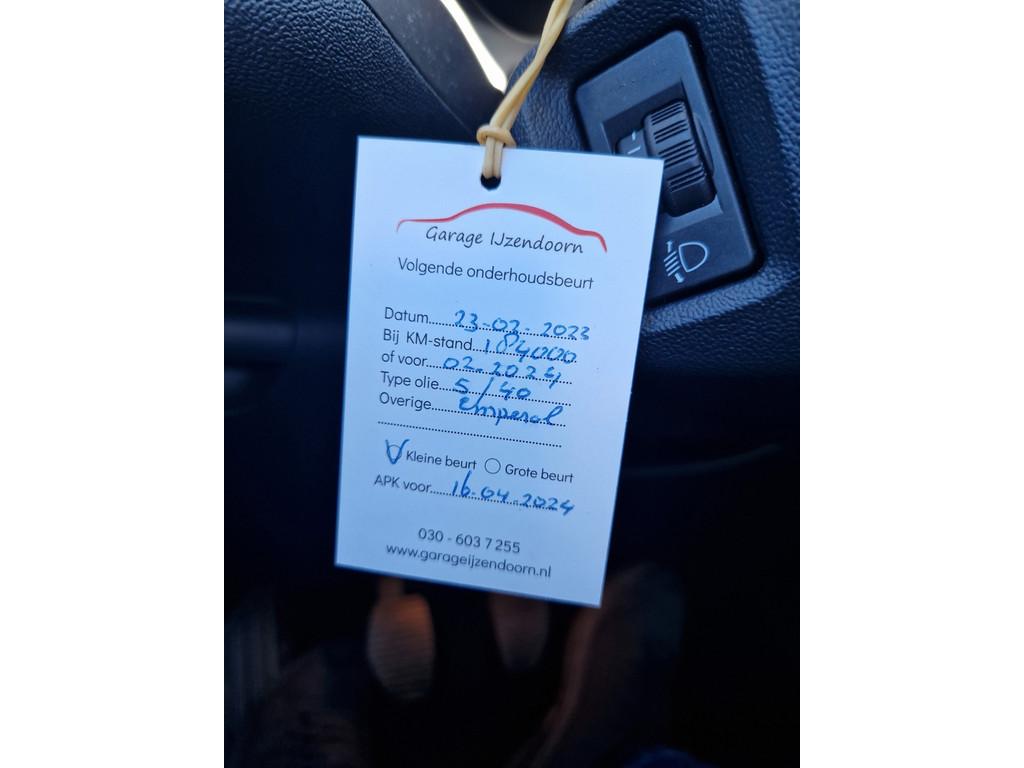 Garage IJzendoorn
Volgende onderhoudsbeurt
Datum 23-02-2023
Bij KM-stand 184000
of voor 02.2024
Type olie 5/40
Overige
Kleine beurt Grote beurt
APK voor 16.04.2024
030 - 603 7 255
www.garageijzendoorn.nl